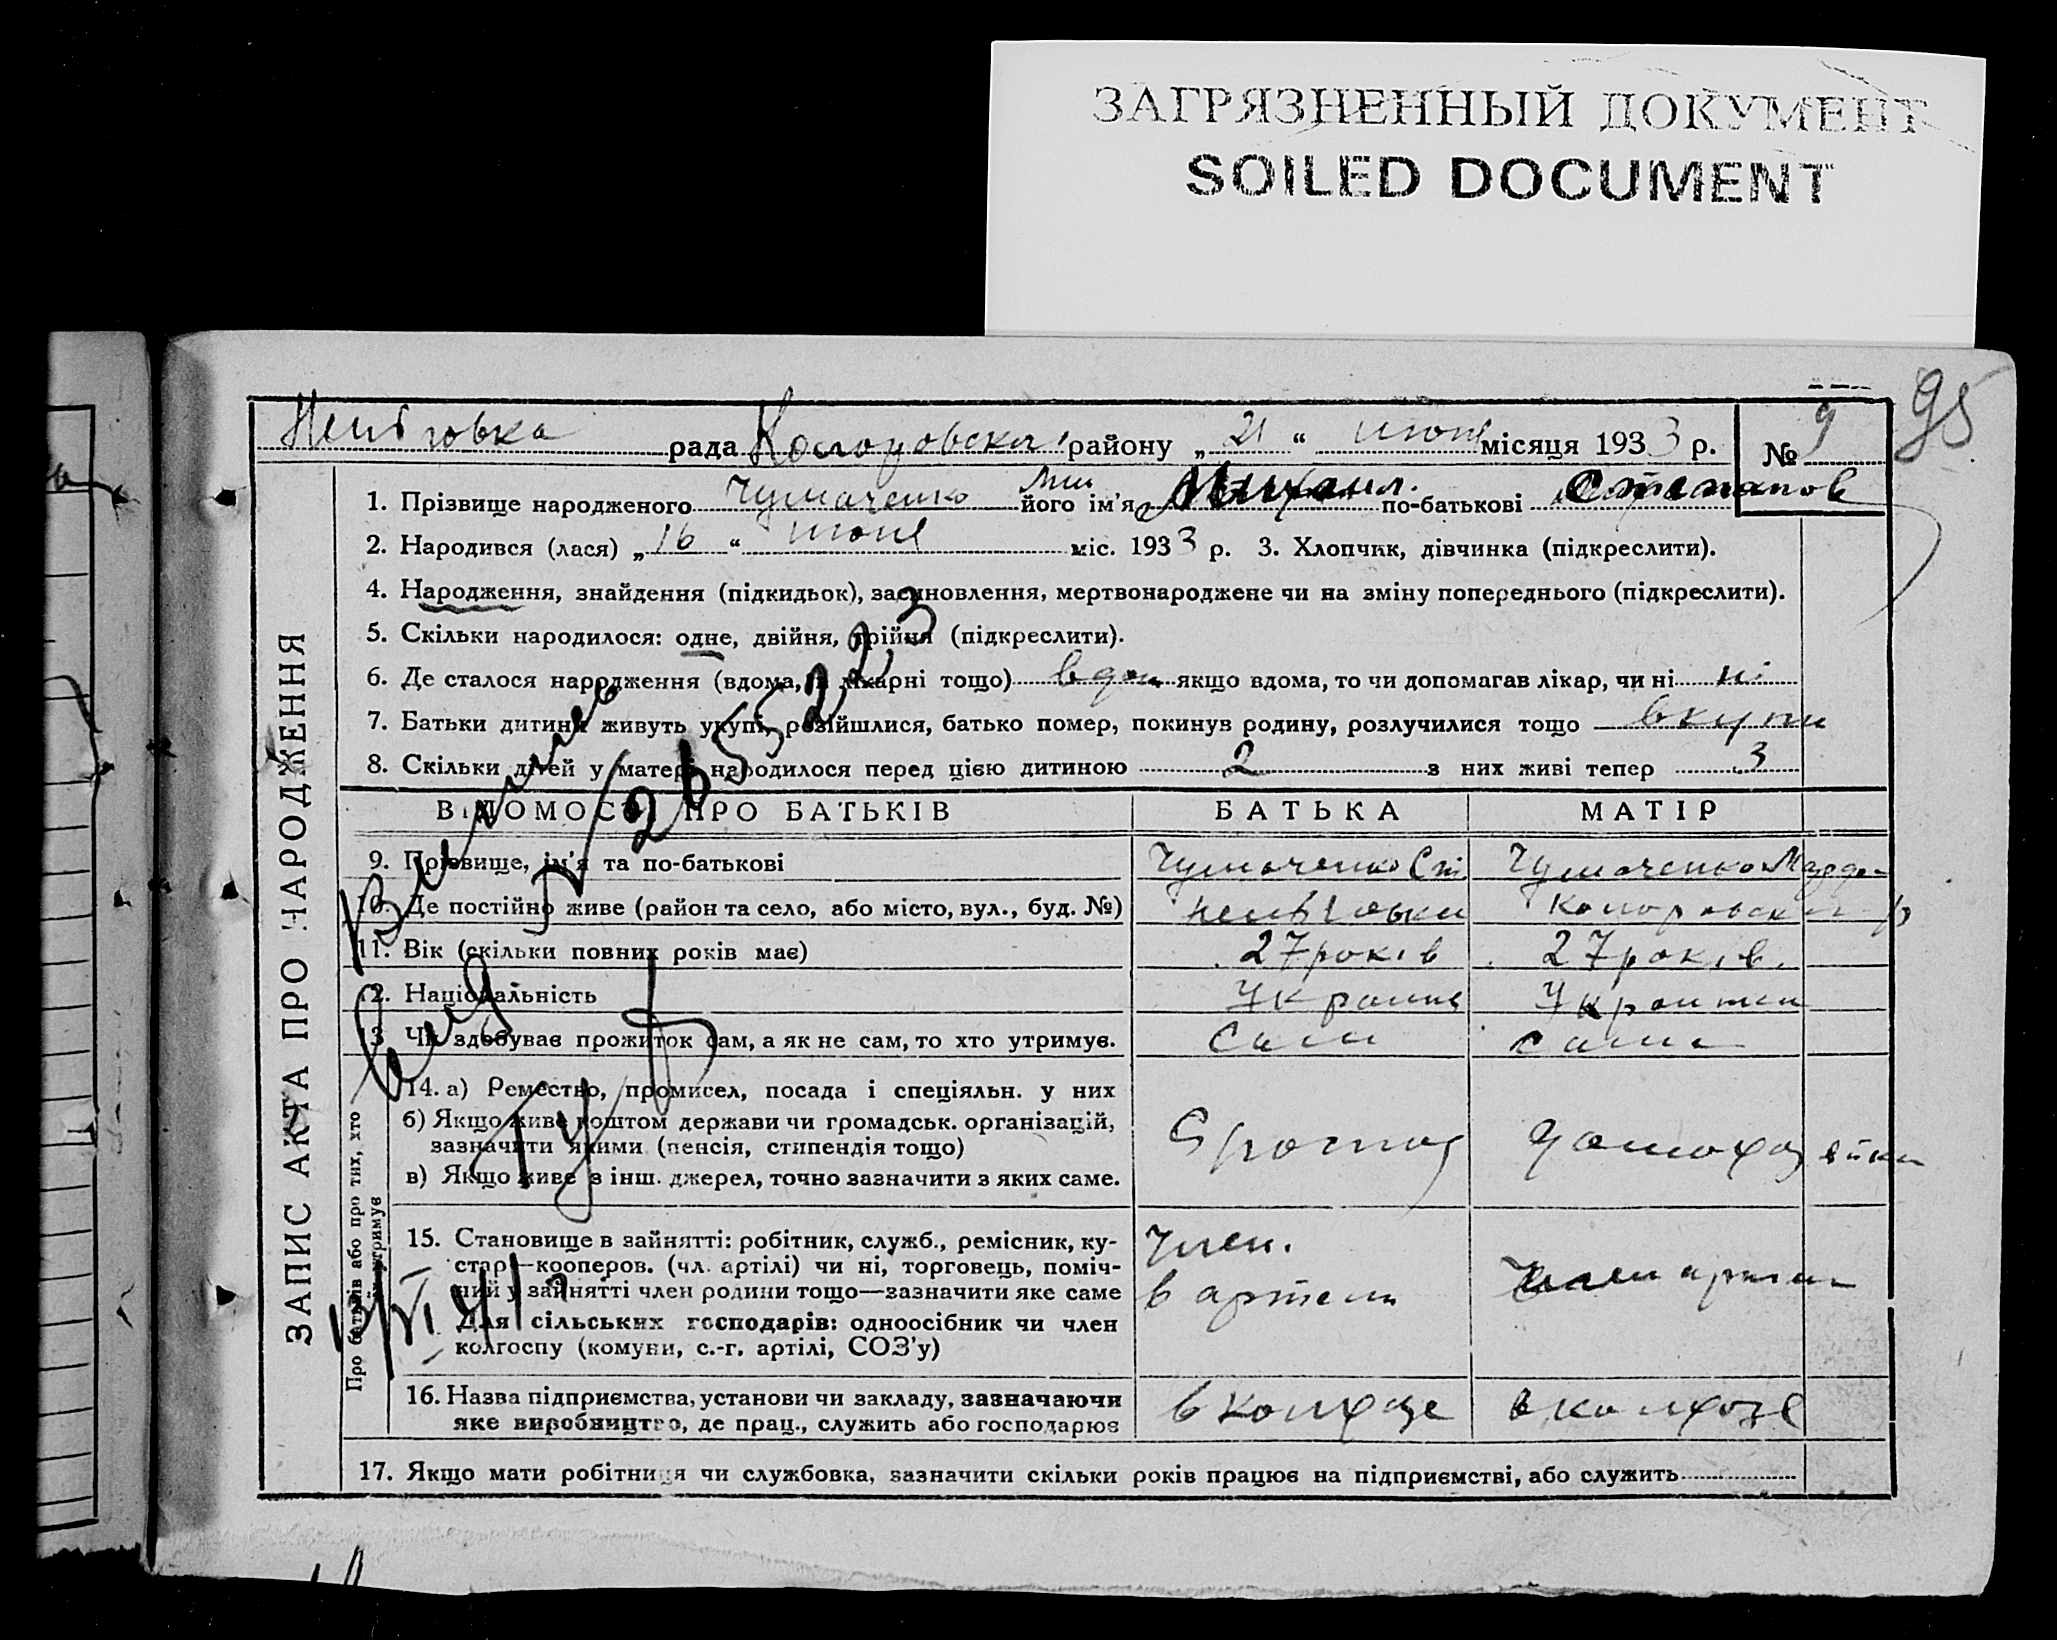 ЗАГРЯЗНЕННЫЙ ДОКУМЕНТ
SOILED DOCUMENT
95
рада району „21“ июня місяця 1933 р. № 9
ЗАПИС АКТА ПРО НАРОДЖЕННЯ
1. Прізвище народженого Чумаченко його ім'я Михаил. по-батькові Степанов
2. Народився (лася) „16“ июня міс. 1933 р. 3. Хлопчик, дівчинка (підкреслити).
4. Народження, знайдення (підкидьок), засиновлення, мертвонароджене чи на зміну попереднього (підкреслити).
5. Скільки народилося: одне, двійня, трійня (підкреслити).
6. Де сталося народження (вдома, в лікарні тощо) вдом якщо вдома, то чи допомагав лікар, чи ні ні
7. Батьки дитини живуть укупі, розійшлися, батько помер, покинув родину, розлучилися тощо вкупи
8. Скільки дітей у матері народилося перед цією дитиною 2 з них живі тепер 3
ВІДОМОСТІ ПРО БАТЬКІВ БАТЬКА МАТІР
9. Прізвище, ім'я та по-батькові Чумаченко Ст. Чумаченко
10. Де постійно живе (район та село, або місто, вул., буд. №)
11. Вік (скільки повних років має) 27 років 27 років.
12. Національність
13. Чи здобуває прожиток сам, а як не сам, то хто утримує. Сам сама
Про батьків або про тих, хто їх утримує
14. а) Ремество, промисел, посада і спеціяльн. у них
б) Якщо живе коштом держави чи громадськ. організацій,
зазначити якими (пенсія, стипендія тощо)
в) Якщо живе з інш. джерел, точно зазначити з яких саме.
15. Становище в зайнятті: робітник, служб., ремісник, ку-
стар—кооперов. (чл. артілі) чи ні, торговець, поміч-
ний у зайнятті член родини тощо—зазначити яке саме
Для сільських господарів: одноосібник чи член
колгоспу (комуни, с.-г. артілі, СОЗ'у)
Член.
в артели
16. Назва підприємства, установи чи закладу, зазначаючи
яке виробництво, де прац., служить або господарює
в колхозе в колхозе
17. Якщо мати робітниця чи службовка, зазначити скільки років працює на підприємстві, або служить